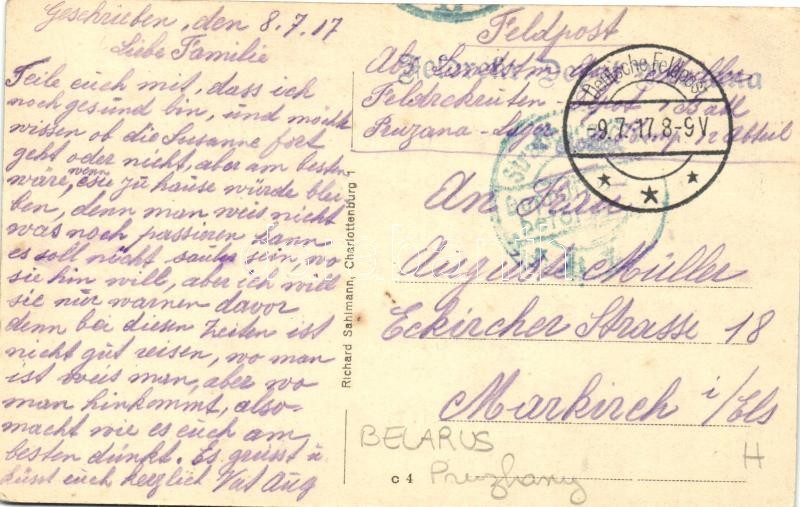 Geschrieben, den 8.7.17
Liebe Familie
Teile euch mit, dass ich
noch gesund bin, und möcht
wissen ob die Susanne fort
geht oder nicht, aber am besten
wäre, wenn sie zu hause würde blei
ben, denn man weis nicht
was noch passieren kann
es soll nicht sein, wo
sie hin will, aber ich will
sie nur warnen davor
denn bei diesen Zeiten ist
nicht gut reisen, wo man
ist weis man, aber wo
man hinkommt, also
macht wie es euch am
besten dünkt. Es grüsst u
küsst euch herzlich Vat Aug
Richard Sahlmann, Charlottenburg 1
Feldpost
Abs. Müller
Feldrekruten-
Pruzana-Lager
Deutsche Feldpost
9.7.17.8-9V
An Frau
Auguste Müller
Eckircher Strasse 18
Markirch i/Els
BELARUS
Pruzhany
H
C 4